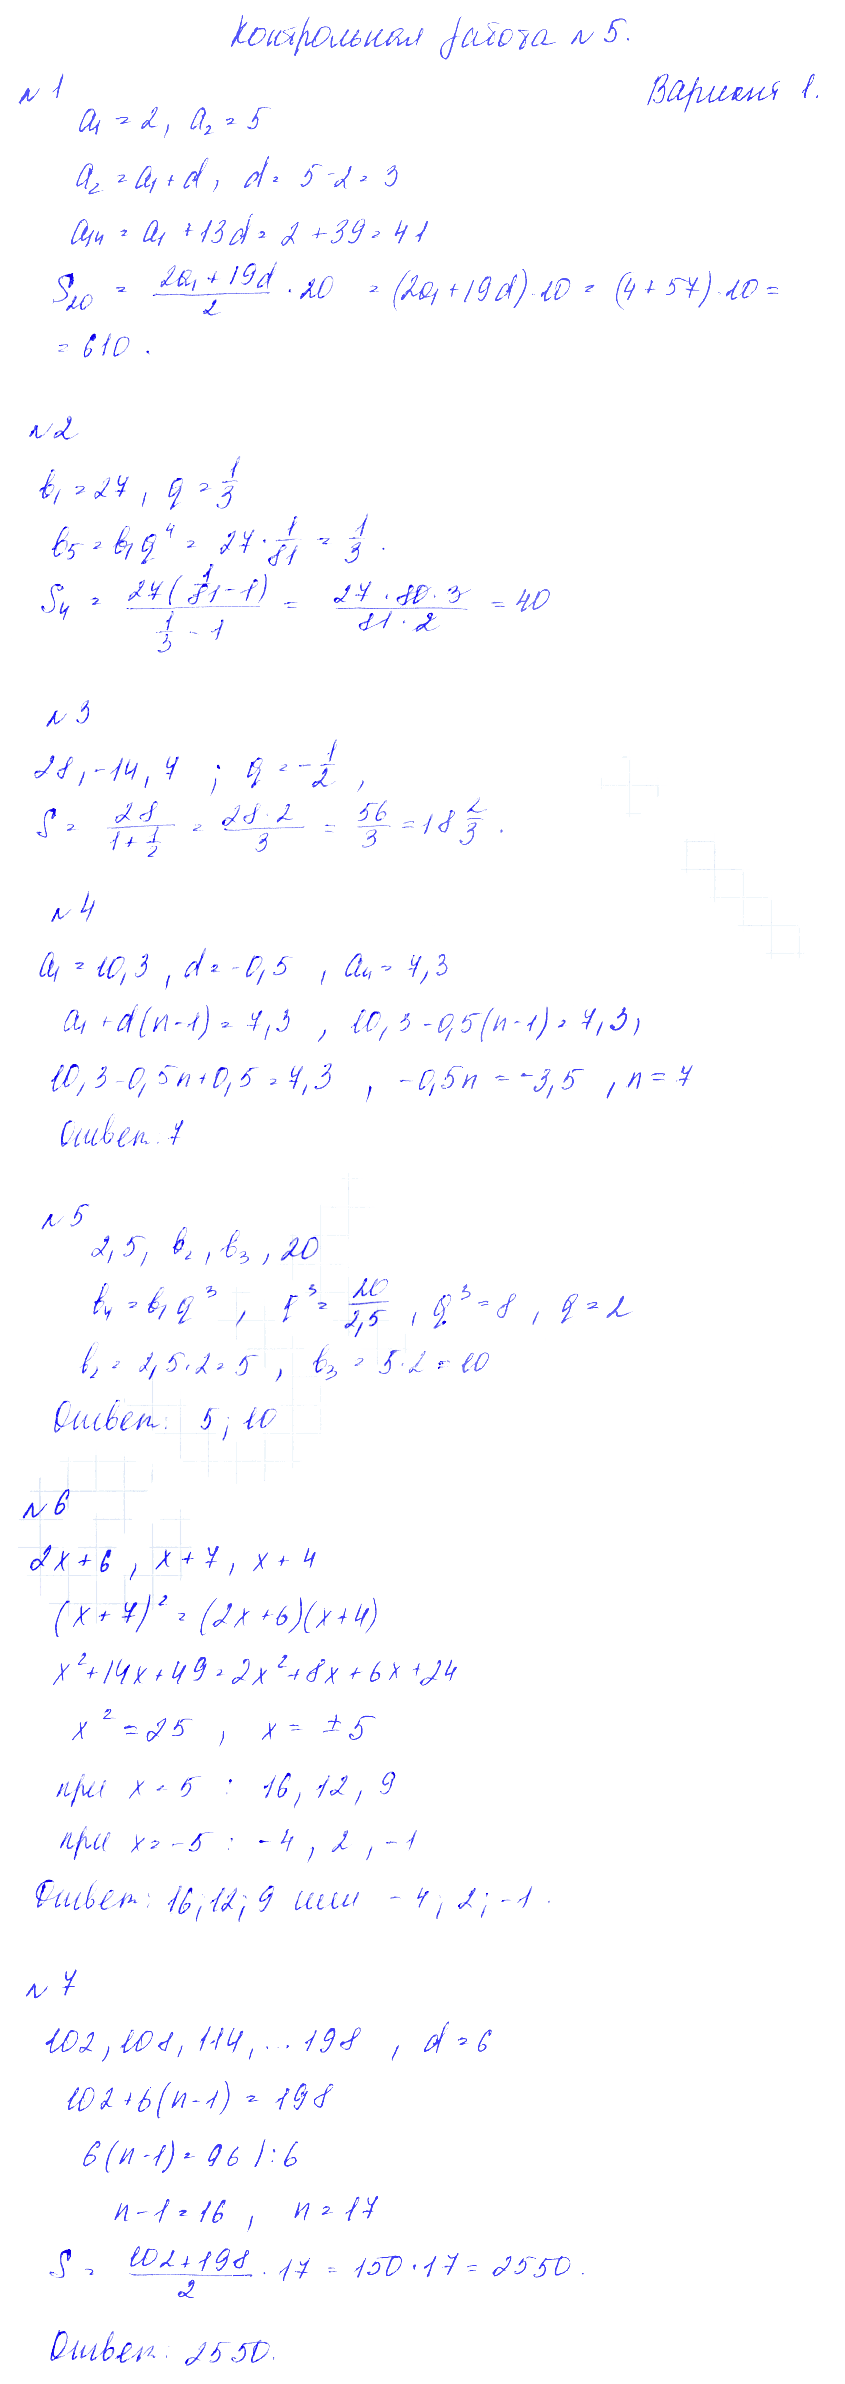 Контрольная работа №5.
Вариант 1.
№1
a₁ = 2, a₂ = 5
a₂ = a₁ + d, d = 5 - 2 = 3
a₁₄ = a₁ + 13d = 2 + 39 = 41
S₂₀ = (2a₁ + 19d)/2 · 20 = (2a₁ + 19d) · 10 = (4 + 57) · 10 =
= 610.
№2
b₁ = 27, q = 1/3
b₅ = b₁q⁴ = 27 · 1/81 = 1/3.
S₄ = 27(1/81 - 1)/(1/3 - 1) = (27 · 80 · 3)/(81 · 2) = 40
№3
28, -14, 7 ; q = -1/2,
S = 28/(1 + 1/2) = (28 · 2)/3 = 56/3 = 18 2/3.
№4
a₁ = 10,3, d = -0,5, aₙ = 7,3
a₁ + d(n - 1) = 7,3, 10,3 - 0,5(n - 1) = 7,3,
10,3 - 0,5n + 0,5 = 7,3, -0,5n = -3,5, n = 7
Ответ. 7
№5
2,5, b₂, b₃, 20
b₄ = b₁q³, q³ = 20/2,5, q³ = 8, q = 2
b₂ = 2,5 · 2 = 5, b₃ = 5 · 2 = 10
Ответ: 5; 10
№6
2x + 6, x + 7, x + 4
(x + 7)² = (2x + 6)(x + 4)
x² + 14x + 49 = 2x² + 8x + 6x + 24
x² = 25, x = ±5
при x = 5 : 16, 12, 9
при x = -5 : -4, 2, -1
Ответ: 16; 12; 9 или -4; 2; -1.
№7
102, 108, 114, ... 198, d = 6
102 + 6(n - 1) = 198
6(n - 1) = 96 | : 6
n - 1 = 16, n = 17
S = (102 + 198)/2 · 17 = 150 · 17 = 2550.
Ответ: 2550.